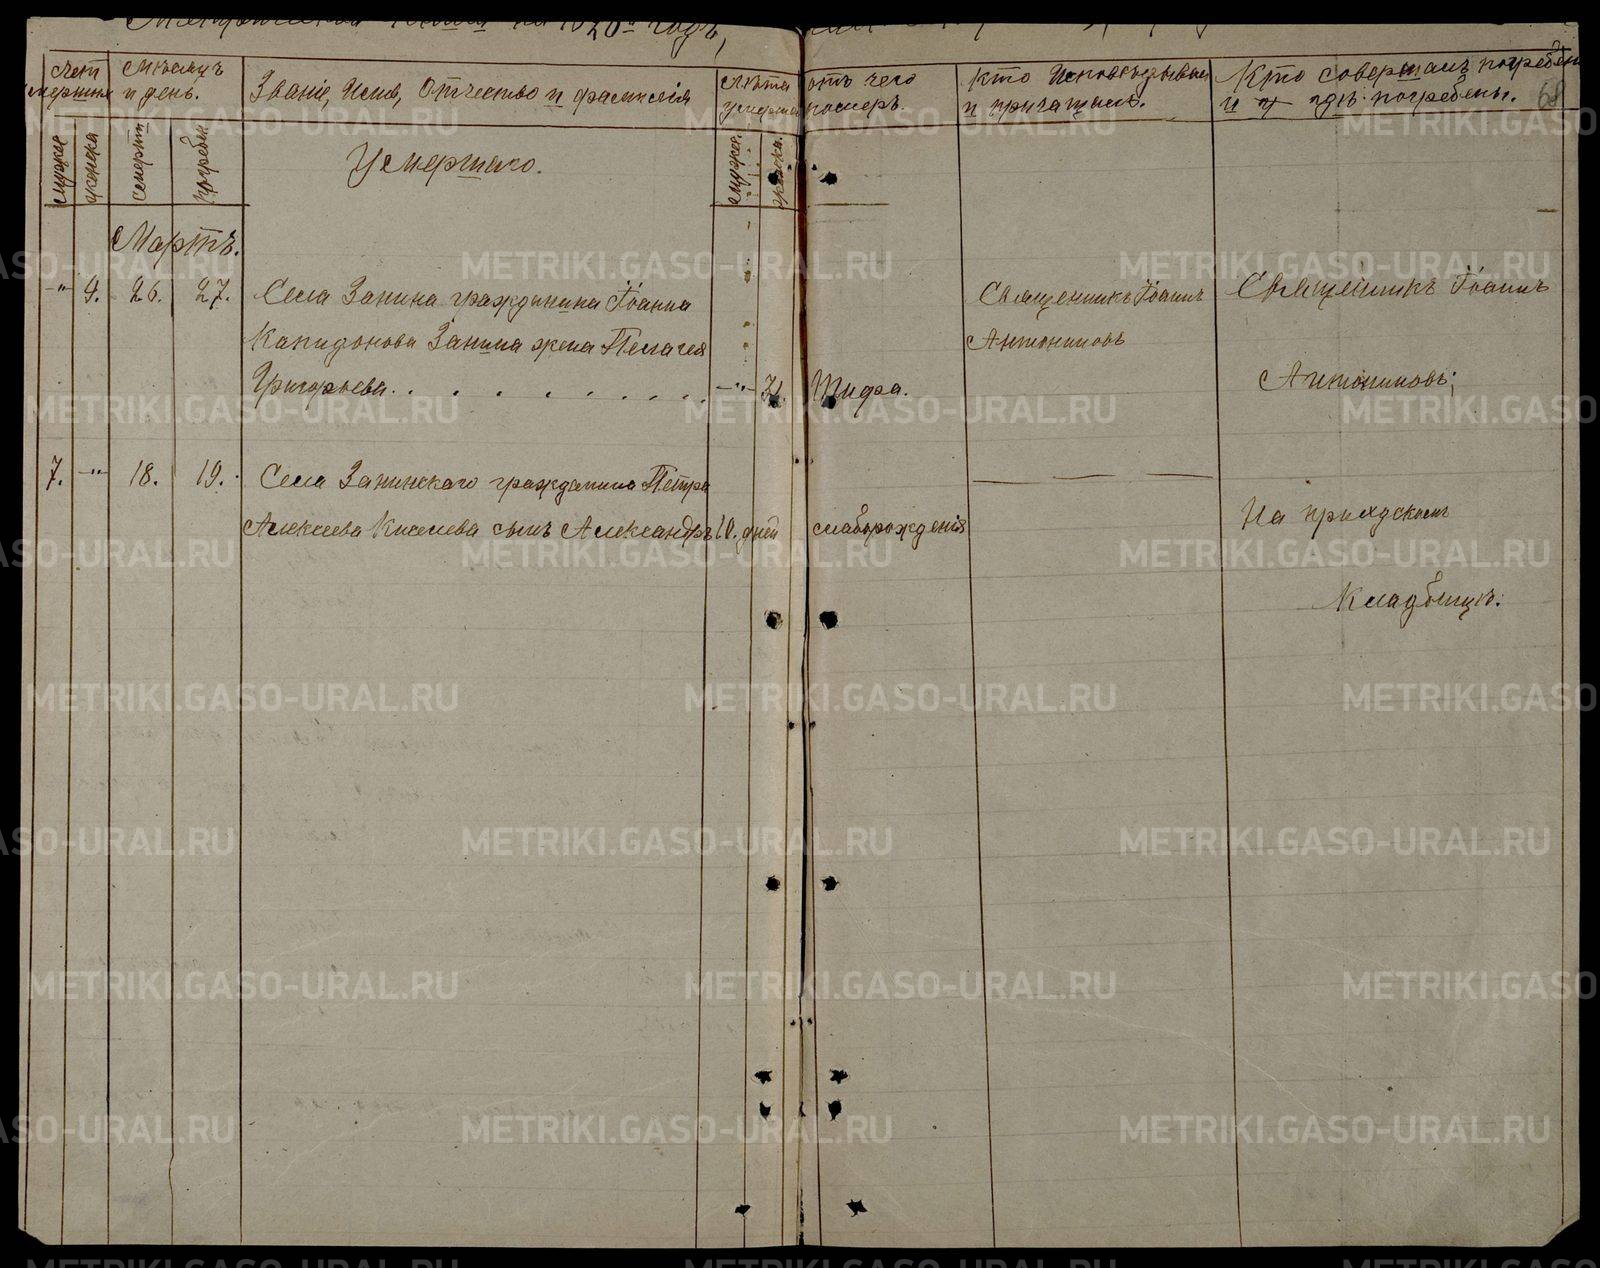 на 1920й годъ,
Счет умершихъ
Мѣсяцъ и день.
Званіе, Имя, Отчество и фамилія
Умершаго.
Лѣта умершаго
отъ чего померъ.
Кто Исповѣдывалъ и причащалъ.
Кто совершалъ погребеніе и гдѣ погребены.
68
мужеска
женска
смерти
погребен
мужеск.
женска.
Мартъ.
-"- 9. 26. 27. Села Занина гражданина Іоанна
Капидонова Занина жена Пелагея
Григорьева. -"- 71. Тифа.
Священникъ Іоаннъ
Антониновъ
Священникъ Іоаннъ
Антониновъ;
7. -"- 18. 19. Села Занинскаго гражданина Петра
Алексеева Киселева сынъ Александръ 10. дней слаборожденія
На приходскомъ
Кладбищѣ.
METRIKI.GASO-URAL.RU